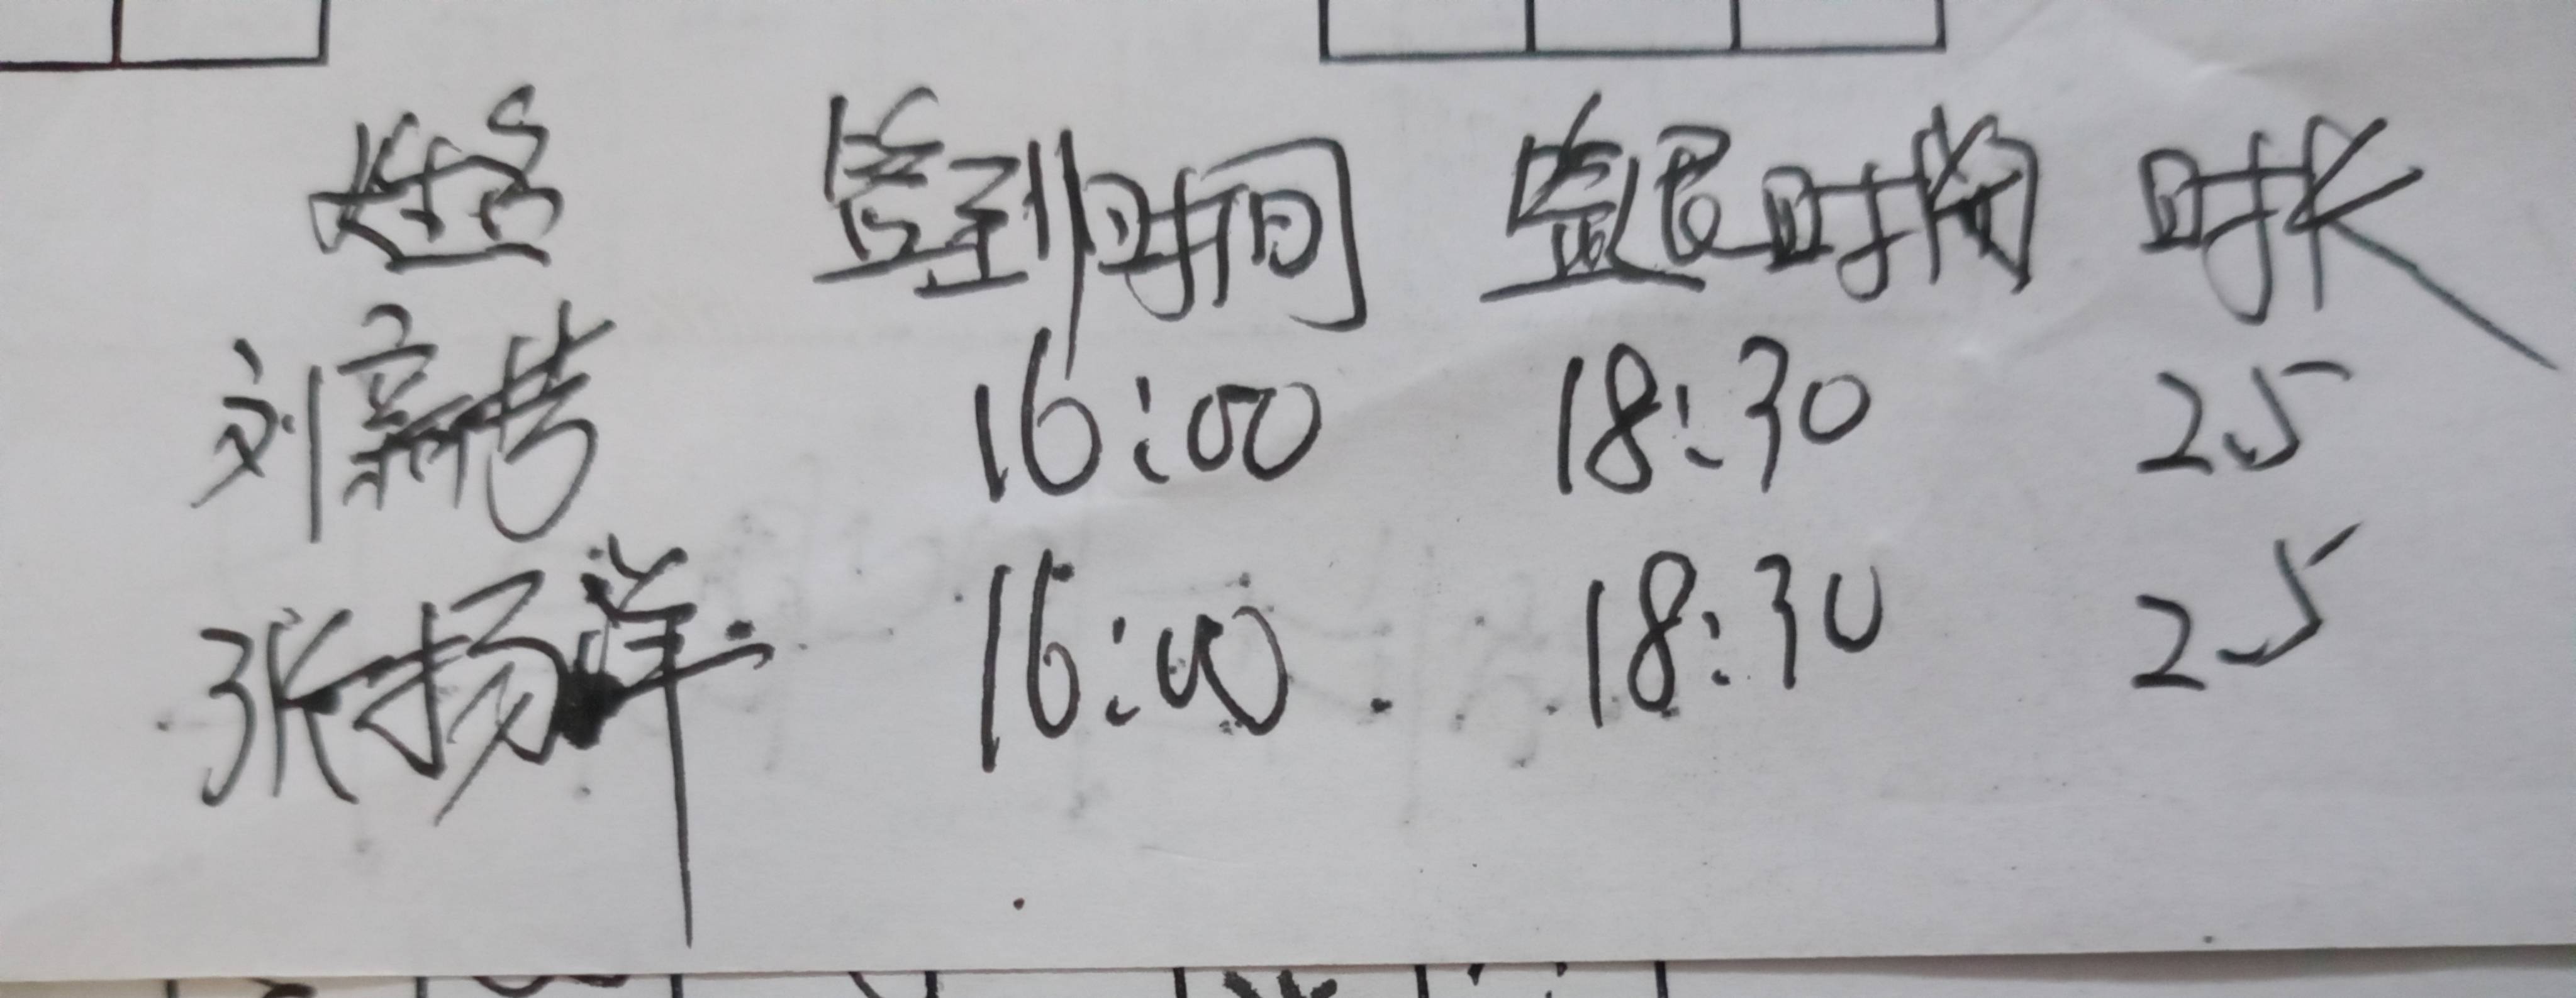 姓名 签到时间 签退时间 时长
刘 16:00 18:30 2.5
张扬洋 16:00 18:30 2.5